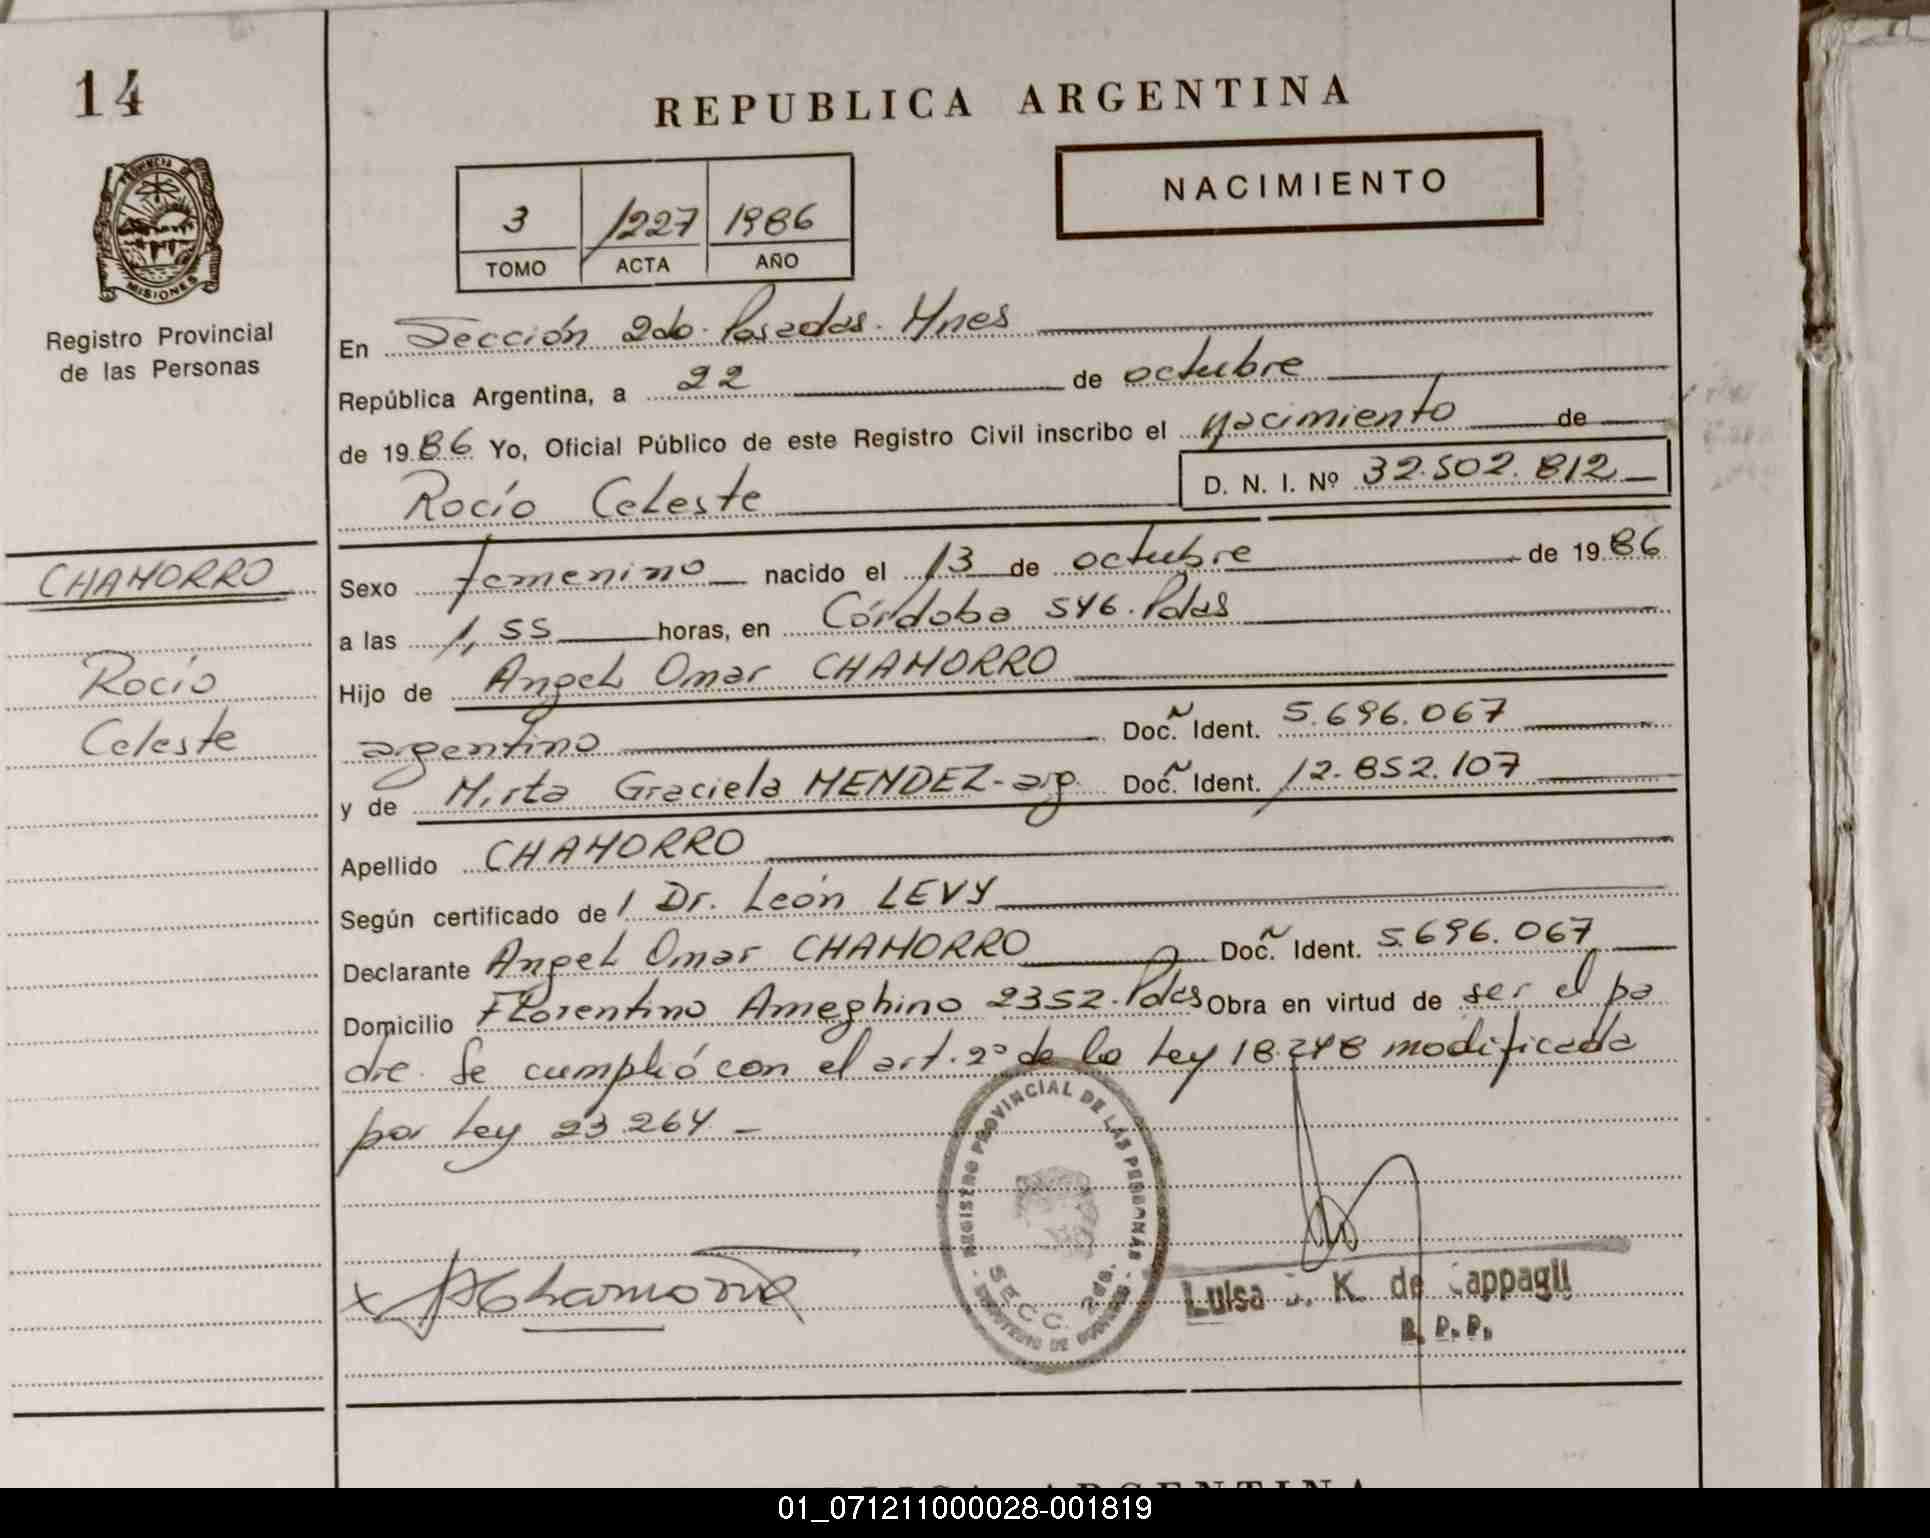 14
REPUBLICA ARGENTINA
NACIMIENTO
3 1227 1986
TOMO ACTA AÑO
PROVINCIA DE
MISIONES
Registro Provincial
de las Personas
En Sección 2da. Posadas. Mnes
República Argentina, a 22 de octubre
de 1986 Yo, Oficial Público de este Registro Civil inscribo el nacimiento de
D. N. I. Nº 32.502.812
Rocío Celeste
CHAMORRO
Rocío
Celeste
Sexo femenino nacido el 13 de octubre de 1986
a las 1,55 horas, en Córdoba 546. Pdas
Hijo de Angel Omar CHAMORRO
argentino Doc. Ident. 5.696.067
y de Mirta Graciela MENDEZ - arg. Doc. Ident. 12.852.107
Apellido CHAMORRO
Según certificado de / Dr. León LEVY
Declarante Angel Omar CHAMORRO Doc. Ident. 5.696.067
Domicilio Florentino Ameghino 2352. Pdas Obra en virtud de ser el pa
dre. Se cumplió con el art. 2º de la Ley 18.248 modificada
por Ley 23.264 -
REGISTRO PROVINCIAL DE LAS PERSONAS
SECC. 2da.
x Chamorro
Luisa K. de
01_071211000028-001819